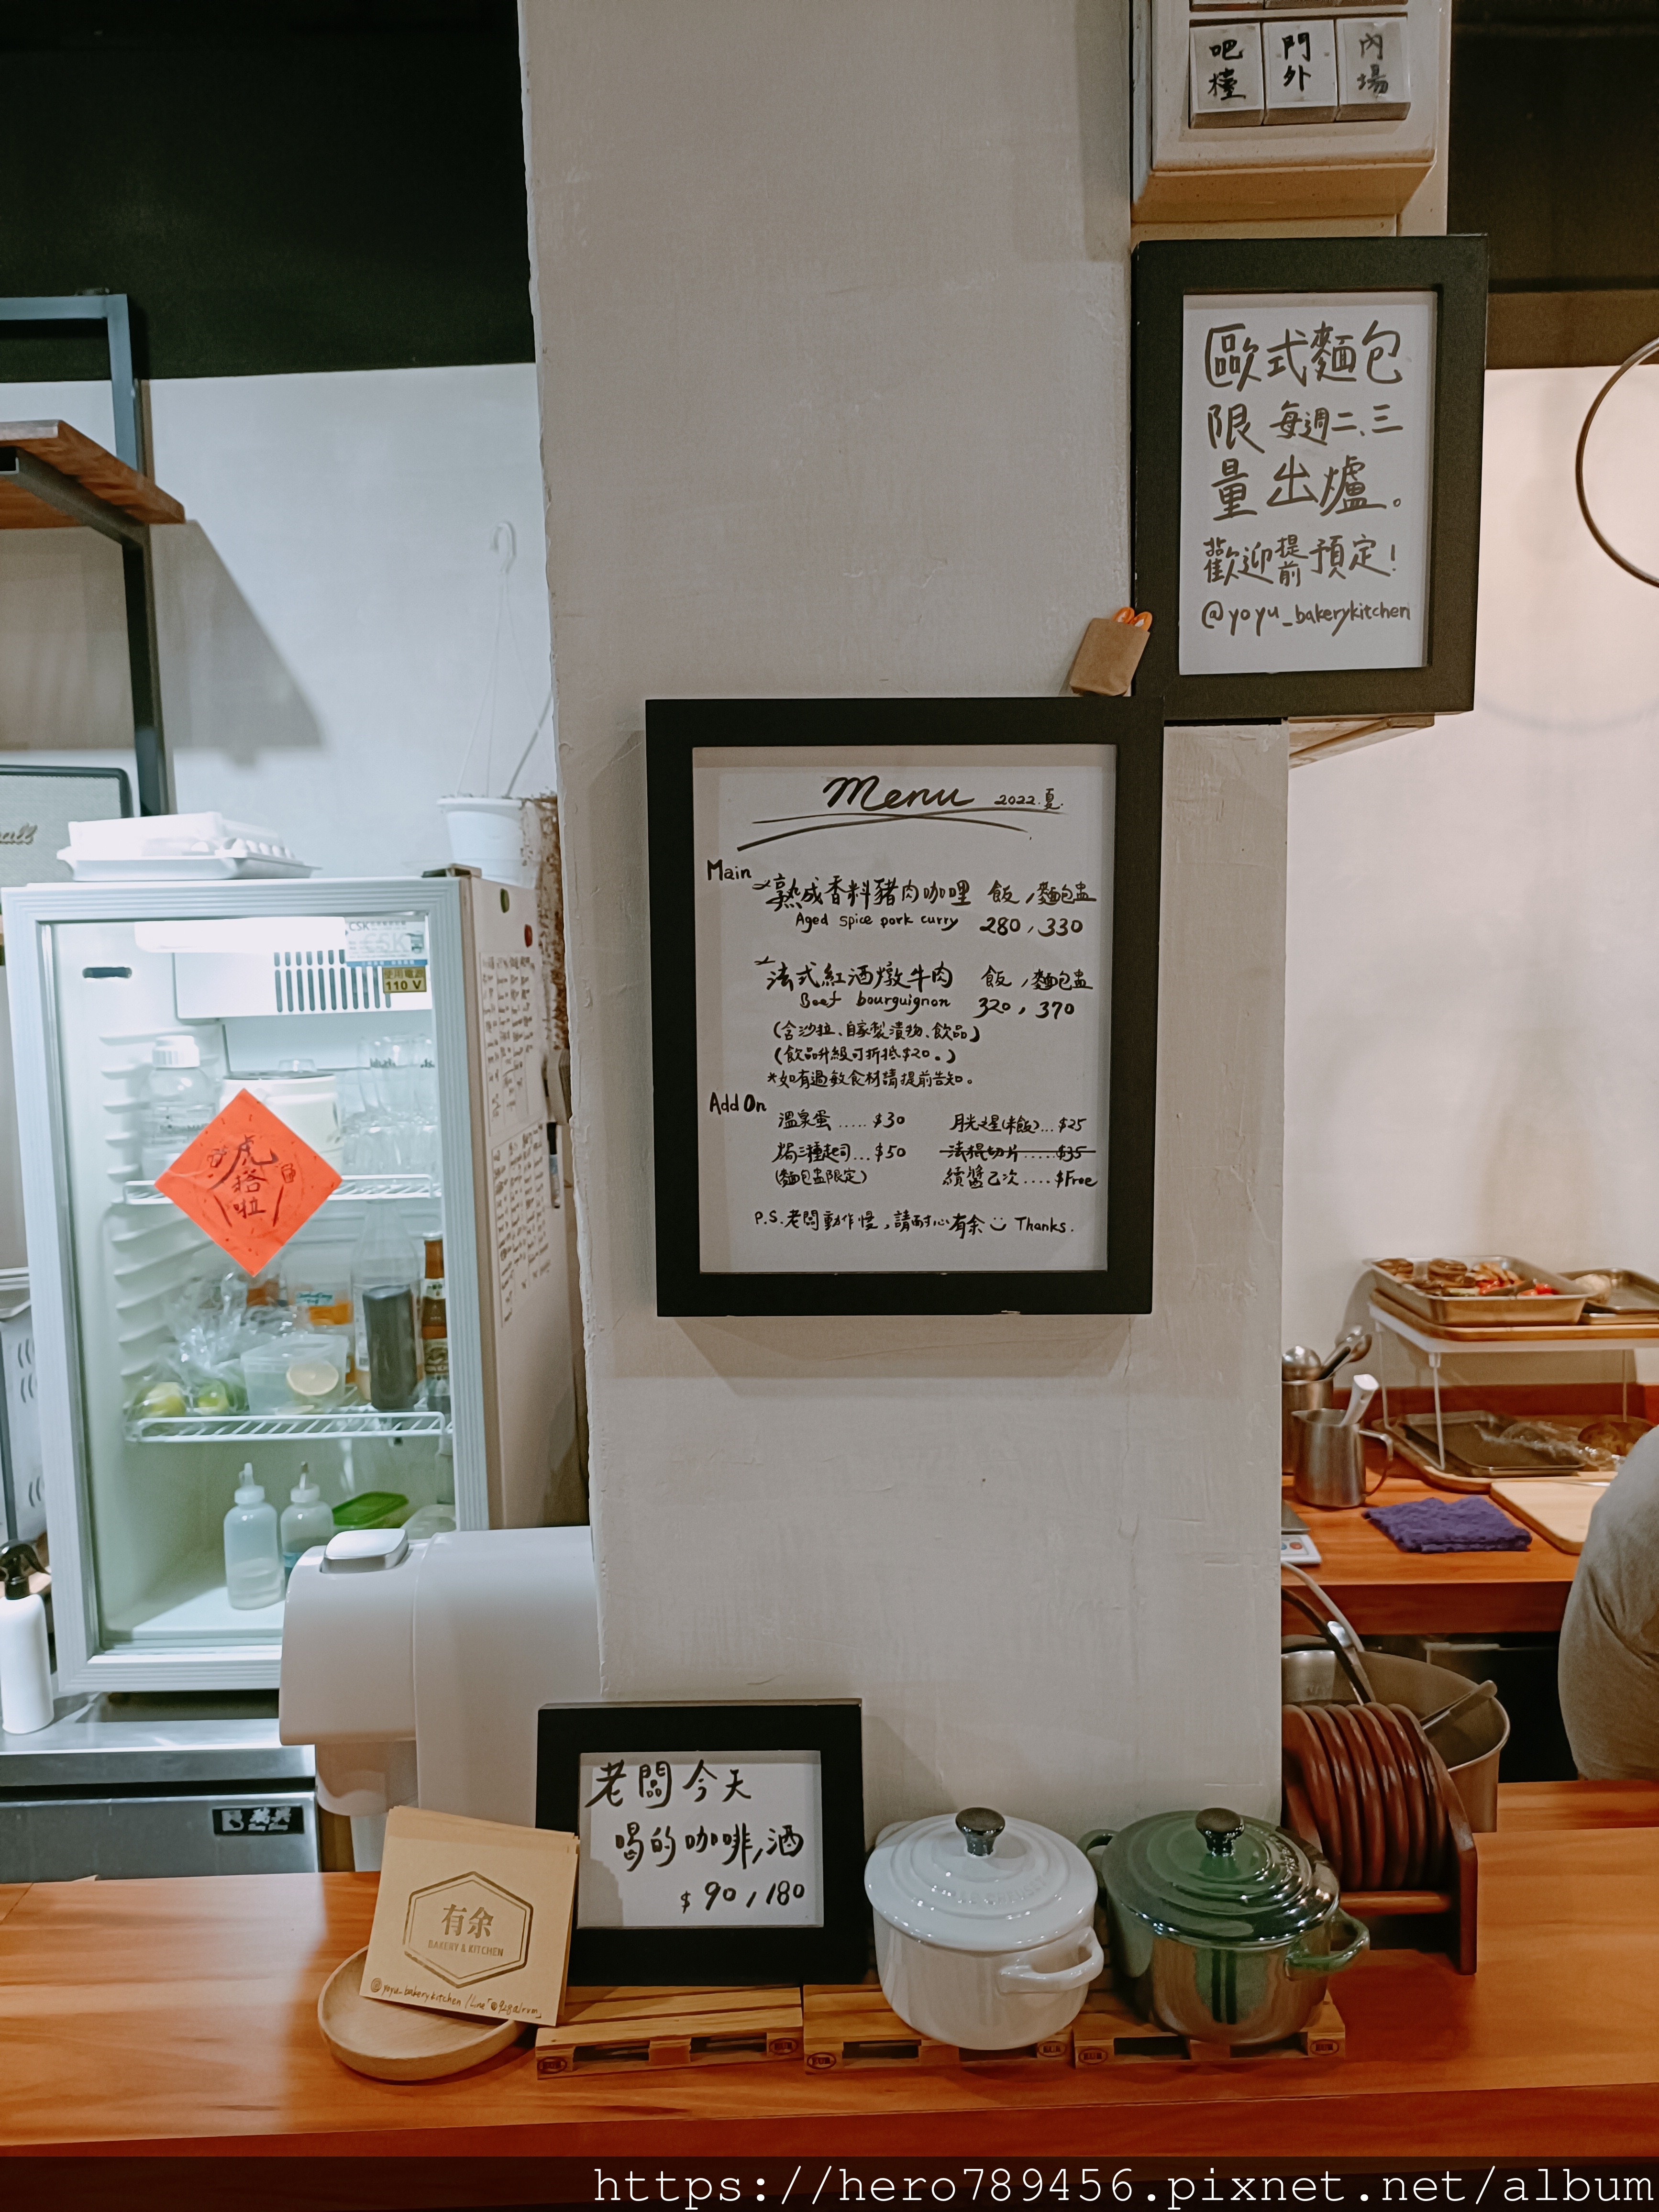 吧檯 門外 內場
歐式麵包
限量 每週二、三
出爐。
歡迎提前預定!
@yoyu_bakerykitchen
Menu 2022.夏.
Main
熟成香料豬肉咖哩 飯,麵包盅
Aged spice pork curry 280,330
法式紅酒燉牛肉 飯,麵包盅
Beef bourguignon 320,370
(含沙拉、自家製漬物、飲品)
(飲品升級可折抵$20。)
*如有過敏食材請提前告知。
Add On
溫泉蛋.....$30 月光之星(米飯)...$25
焗三種起司...$50 法棍切片.....$35
(麵包盅限定) 續醬乙次....$Free
P.S.老闆動作慢,請耐心有余 Thanks.
CSK
使用電源
110 V
虎搭啦
老闆今天
喝的咖啡,酒
$90,180
有余
BAKERY & KITCHEN
@yoyu_bakerykitchen
https://hero789456.pixnet.net/album